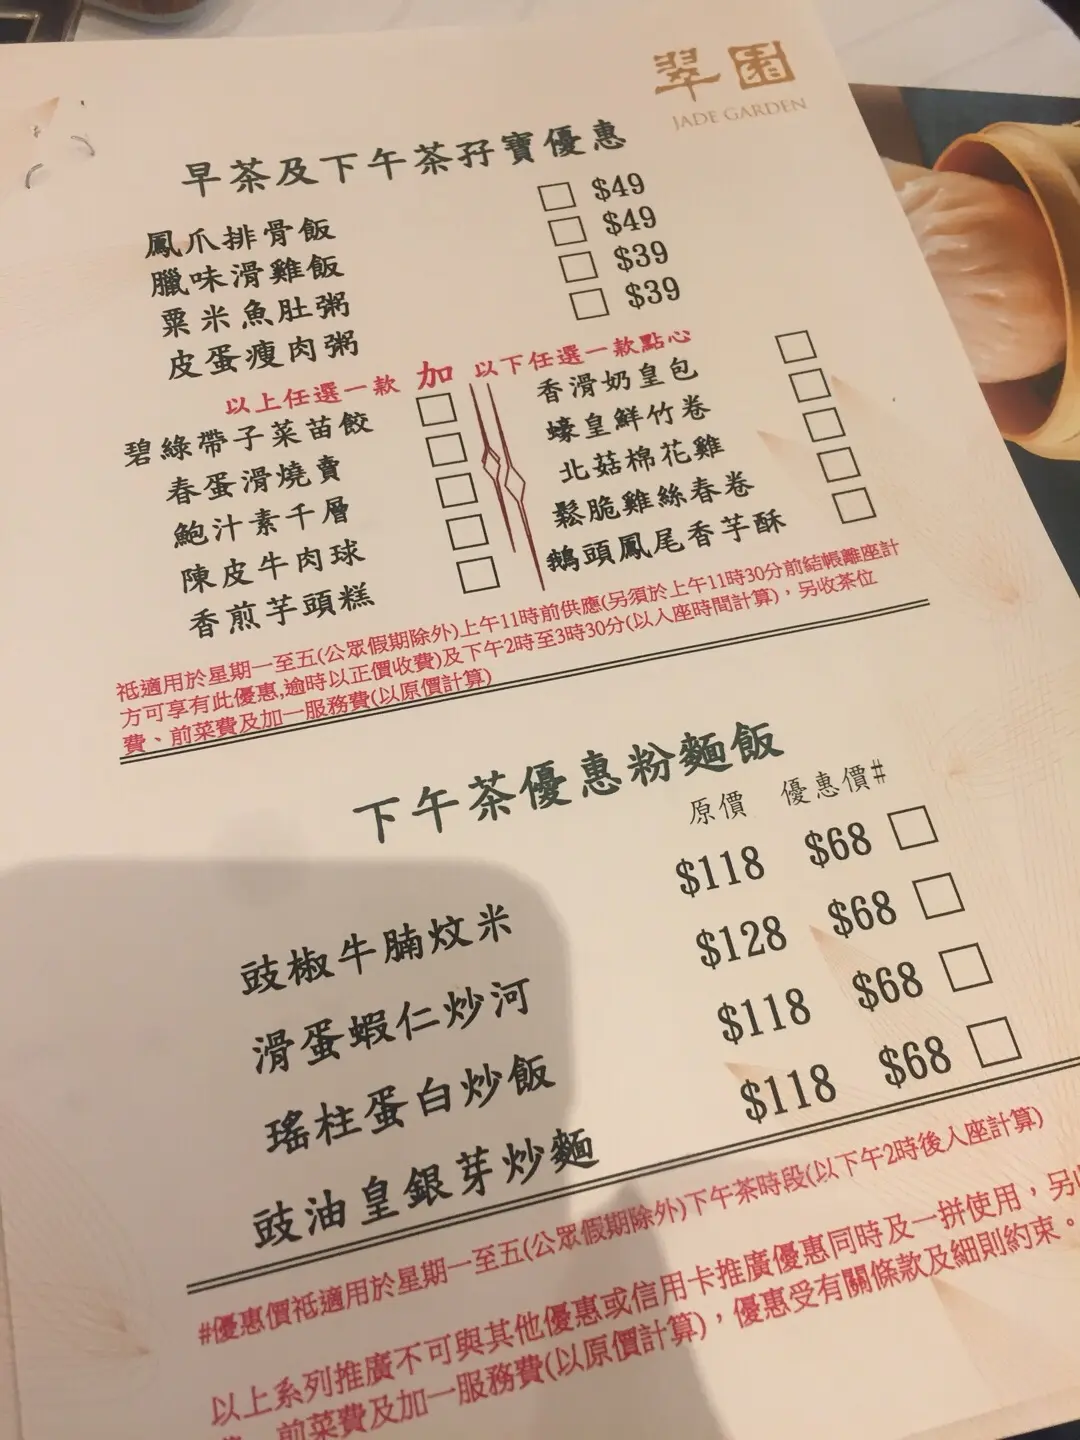 翠園
JADE GARDEN
早茶及下午茶孖寶優惠
鳳爪排骨飯 $49
臘味滑雞飯 $49
粟米魚肚粥 $39
皮蛋瘦肉粥 $39
以上任選一款 加 以下任選一款點心
碧綠帶子菜苗餃
春蛋滑燒賣
鮑汁素千層
陳皮牛肉球
香煎芋頭糕
香滑奶皇包
蠔皇鮮竹卷
北菇棉花雞
鬆脆雞絲春卷
鵝頭鳳尾香芋酥
祗適用於星期一至五(公眾假期除外)上午11時前供應(另須於上午11時30分前結帳離座計
方可享有此優惠,逾時以正價收費)及下午2時至3時30分(以入座時間計算)，另收茶位
費、前菜費及加一服務費(以原價計算)
下午茶優惠粉麵飯
原價 優惠價#
豉椒牛腩炆米 $118 $68
滑蛋蝦仁炒河 $128 $68
瑤柱蛋白炒飯 $118 $68
豉油皇銀芽炒麵 $118 $68
#優惠價祗適用於星期一至五(公眾假期除外)下午茶時段(以下午2時後入座計算)
以上系列推廣不可與其他優惠或信用卡推廣優惠同時及一拼使用，另
、前菜費及加一服務費(以原價計算)，優惠受有關條款及細則約束。